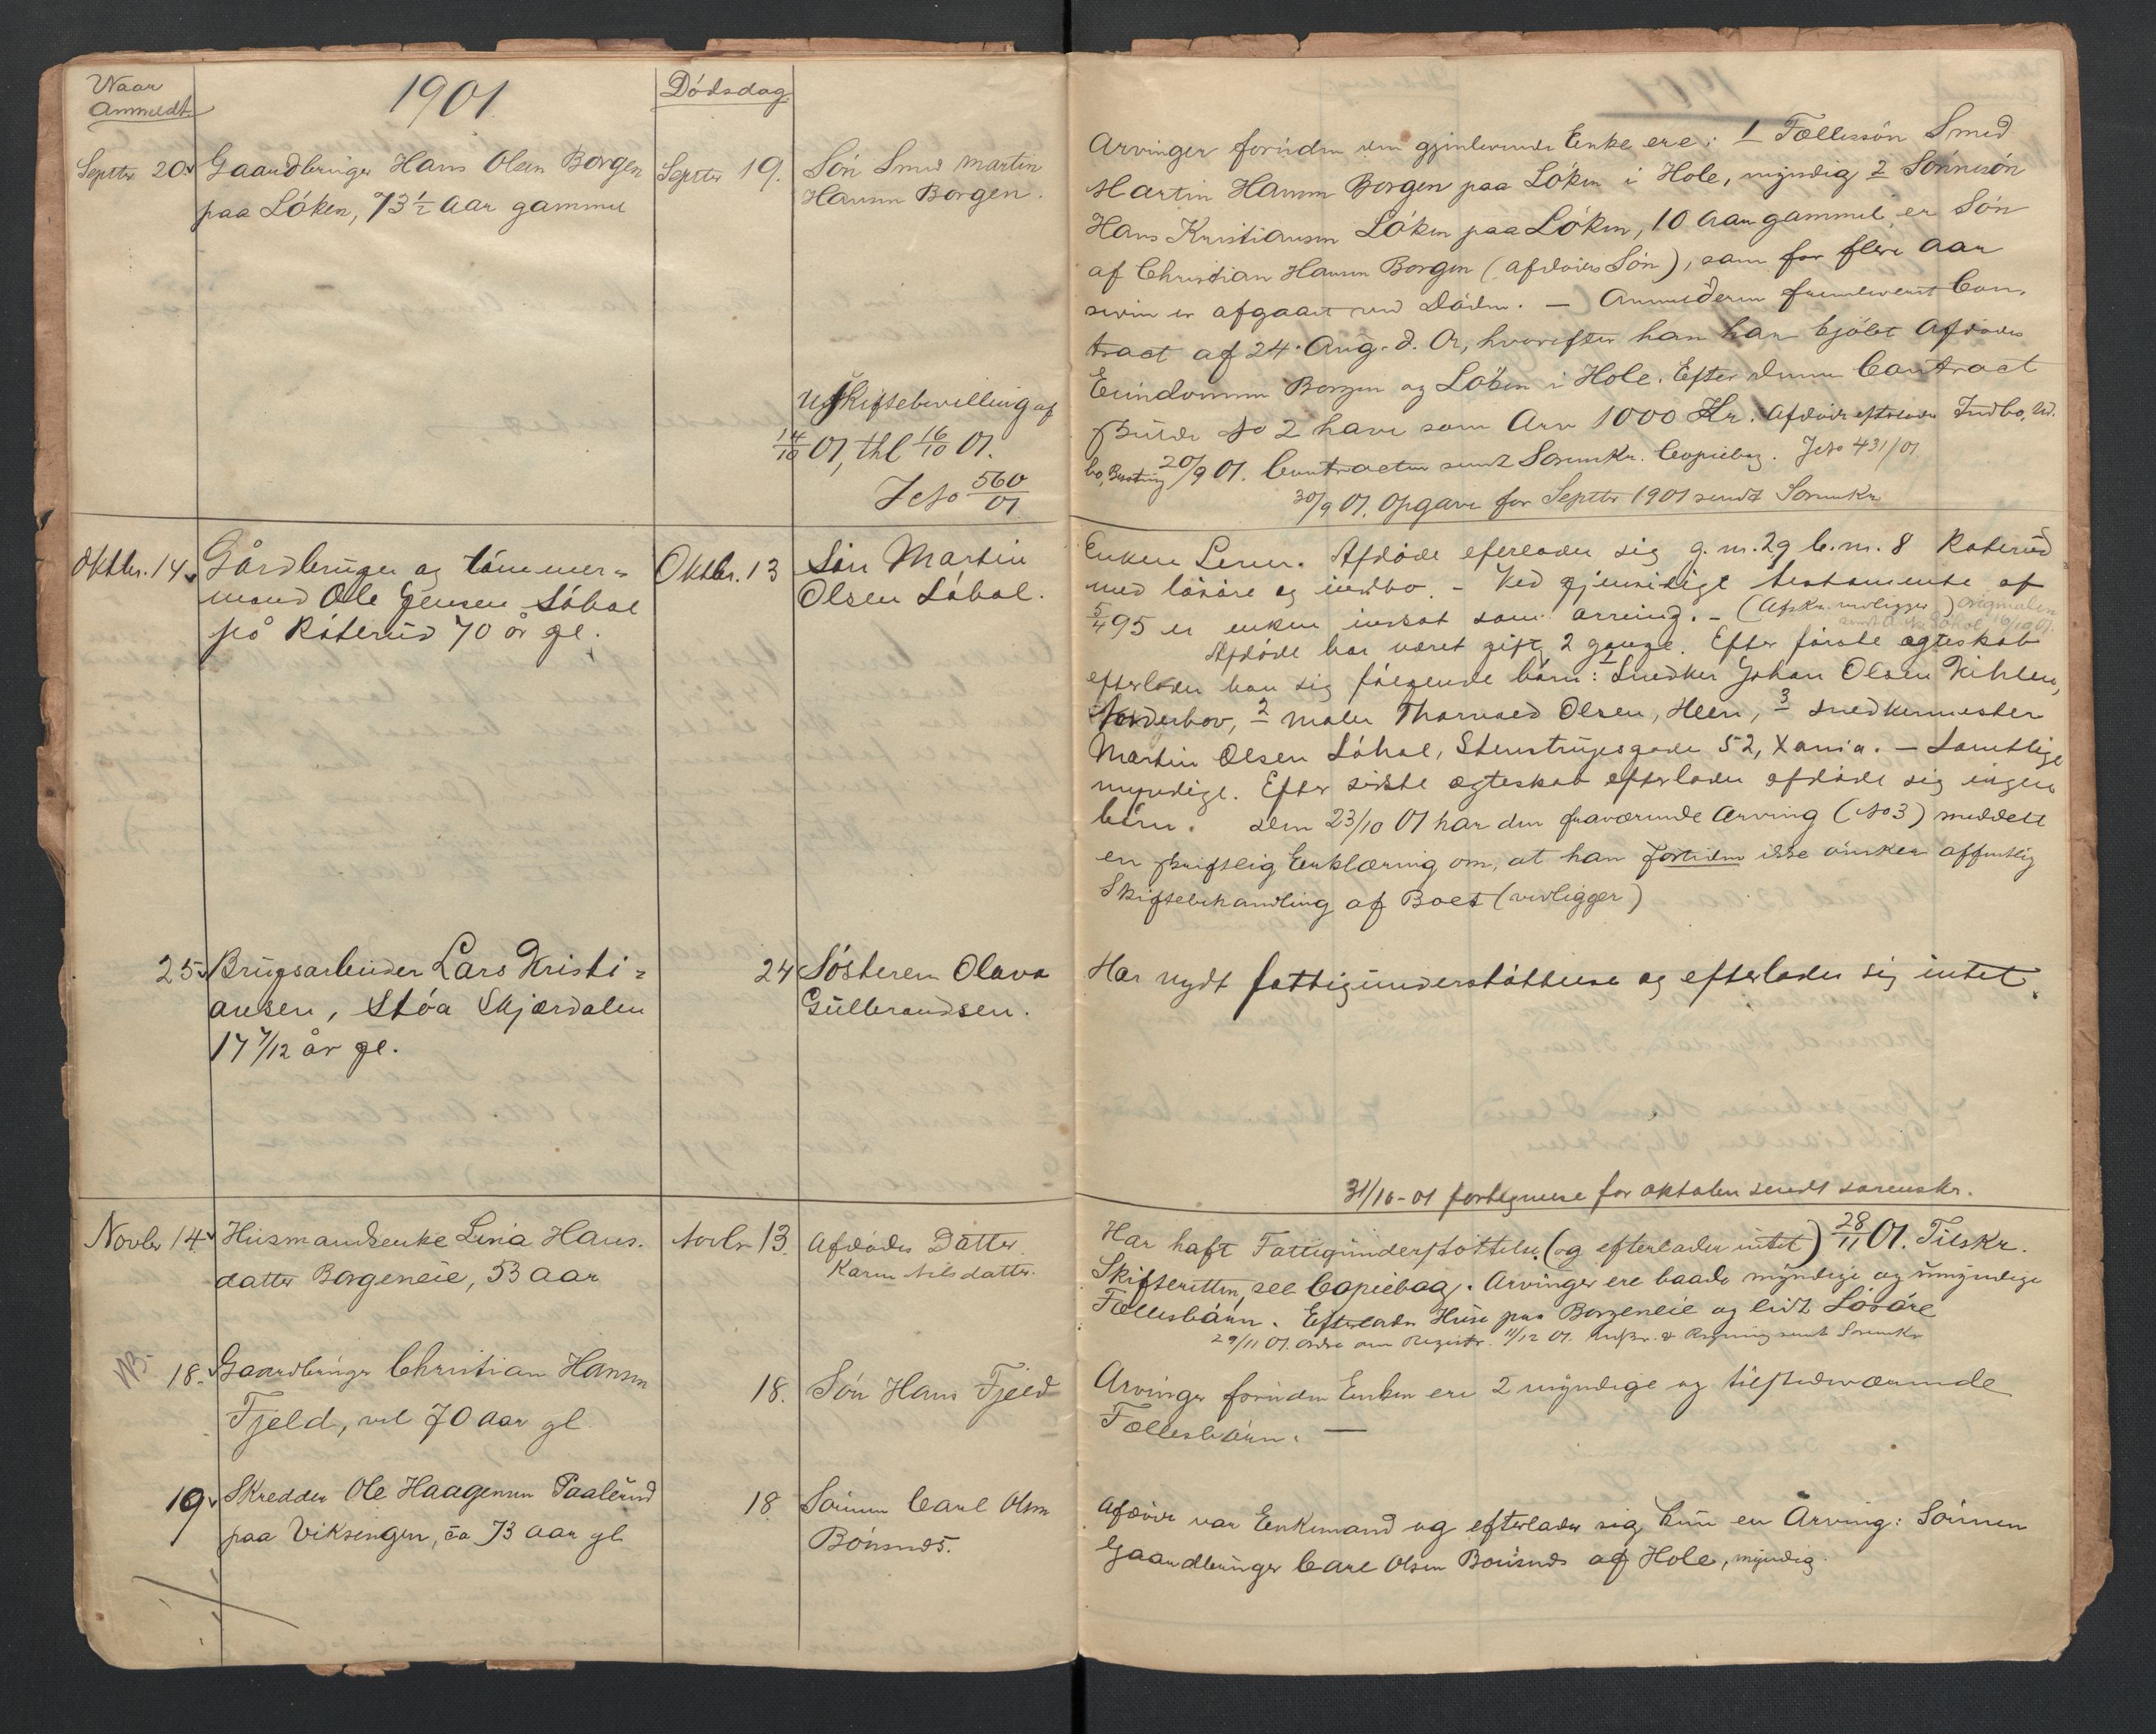 Naar
Anmeldt.
1901
Dödsdag.
Septbr 20.
Gaardbruger Hans Olsen Borgen
paa Löken, 73 1/2 Aar gammel
Septbr 19.
Sön Smed Martin
Hansen Borgen.
Uskiftebevilling af
14/10 01, thl 16/10 01.
JNo 560/01
Oktbr. 14
Gårdbruger og tömmer=
mand Ole Jensen Löbal
på Röterud 70 år gl.
Oktbr. 13
Sön Martin
Olsen Löbal.
25
Brugsarbeider Lars Kristi=
ansen, Stöa Skjærdalen
17 7/12 år gl.
24
Sösteren Olava
Gulbrandsen.
Novbr 14
Husmandsenke Lina Hans.
datter Borgeneie, 53 Aar
Novbr 13.
Afdödes Datter
Karen Nilsdatter.
NB.
18.
Gaardbruger Christian Hansen
Fjeld, vel 70 Aar gl
18.
Sön Hans Fjeld
19
Skredder Ole Haagensen Paalerud
paa Viksengen, ca 73 Aar gl
18
Sönnen Carl Olsen
Bönsnes.
Arvinger foruden den gjenlevende Enke ere: 1 Fællessön Smed
Martin Hansen Borgen paa Löken i Hole, myndig 2 Sönnesön
Hans Kristiansen Löken paa Löken, 10 Aar gammel er Sön
af Christian Hansen Borgen (afdödes Sön), som for flere Aar
siden er afgaaet ved Döden. — Anmelderen fremleverte Con-
tract af 24. Aug. d. A., hvorefter han har kjöbt Afdödes
Eiendomme Borgen og Löken i Hole. Efter denne Contract
skulde No 2 have som Arv 1000 Kr. Afdöde efterlader Indbo, Ud.
bo, Besætning 20/9 01. Contracten sendt Sorenskr. Copiebog. JNo 431/01.
30/9 01. Opgave for Septbr 1901 sendt Sorenskr
Enken Lene. Afdöde eferlader sig g. nr. 29 b. nr. 8 Röterud
med lösöre og indbo. - Ved gjensidige testamente af
5/4 95 er enken indsat som arving. - (Afskr. vedligger) originalen
Afdöde har været gift 2 gange. Efter förste ægteskab
efterlader han sig fölgende börn: 1 Snedker Johan Olsen Kihlen,
Norderhov, 2 maler Thorvald Olsen, Heen, 3 snedkermester
Martin Olsen Löbal, Stenstrupsgade 52, Xania. - Samtlige
myndige. Efter sidste ægteskab efterlader afdöde sig ingen
börn. Den 23/10 01 har den fraværende Arving (No 3) meddelt
en skriftlig Erklæring om, at han fortiden ikke önsker offentlig
Skiftebehandling af Boet (vedligger)
Har nydt fattigunderstöttelse og efterlader sig intet.
31/10-01 fortegnelse for oktober sendt sorenskr.
Har haft Fattigunderstöttelse (og efterlader intet) 28/11 01. Tilskr.
Skifteretten, see Copiebog. Arvinger ere baade myndige og umyndige
Fællesbörn. Efterlader Huse paa Borgeneie og lidt Lösöre
29/11 01. Ordre om Registr. 11/12 01. & Regning sendt Sorenskr
Arvinger foruden Enken ere 2 myndige og tilstedeværende
Fællesbörn. —
Afdöde var Enkemand og efterlader sig kun en Arving: Sönnen
Gaardbruger Carl Olsen Bönsnes af Hole, myndig.